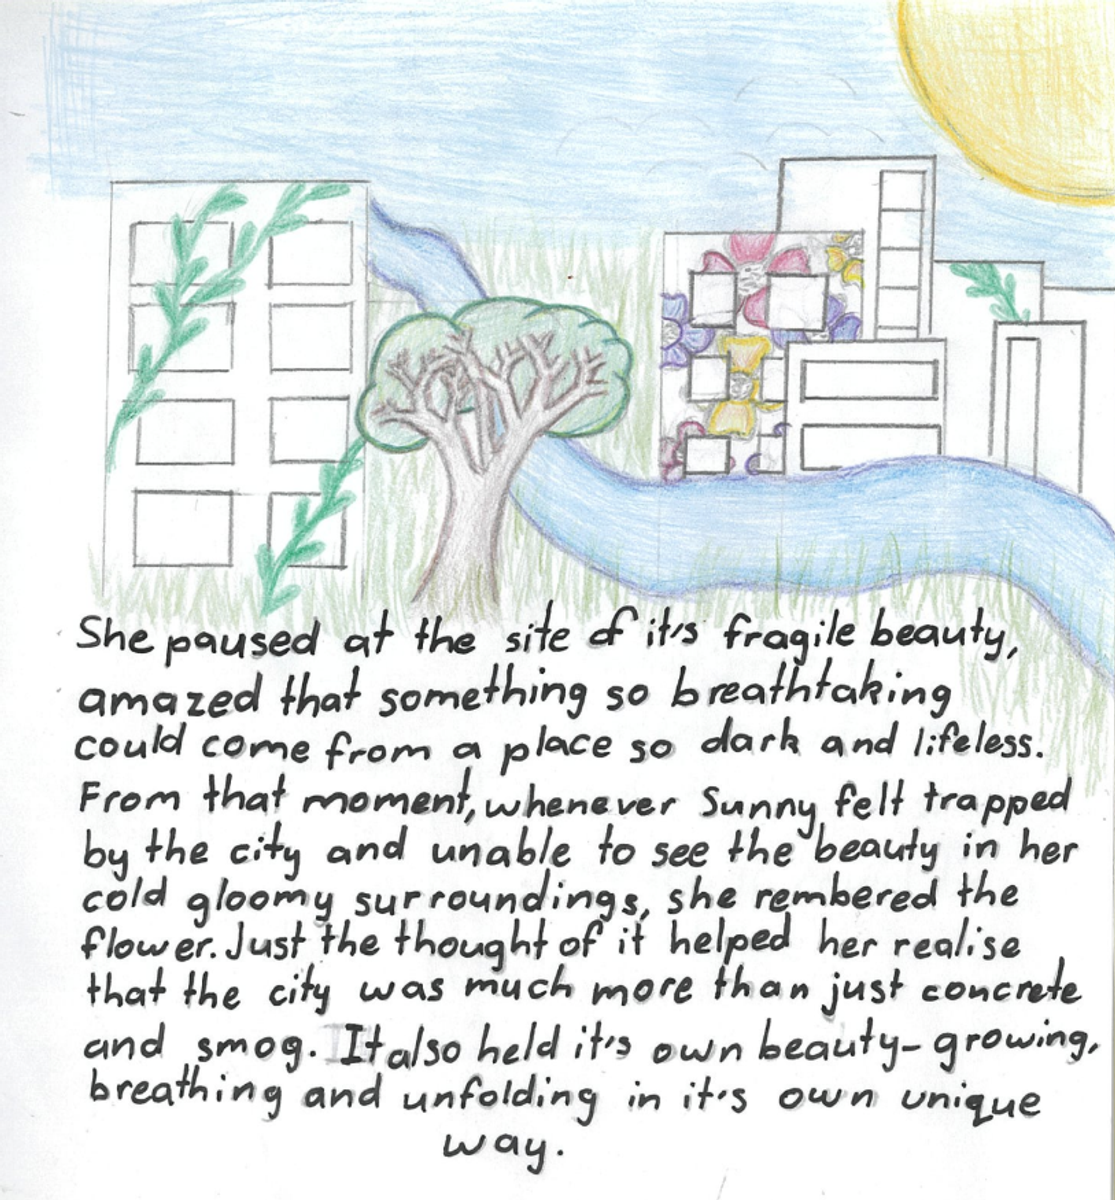 She paused at the site of it's fragile beauty,
amazed that something so breathtaking
could come from a place so dark and lifeless.
From that moment, whenever Sunny felt trapped
by the city and unable to see the beauty in her
cold gloomy surroundings, she rembered the
flower. Just the thought of it helped her realise
that the city was much more than just concrete
and smog. It also held it's own beauty- growing,
breathing and unfolding in it's own unique
way.